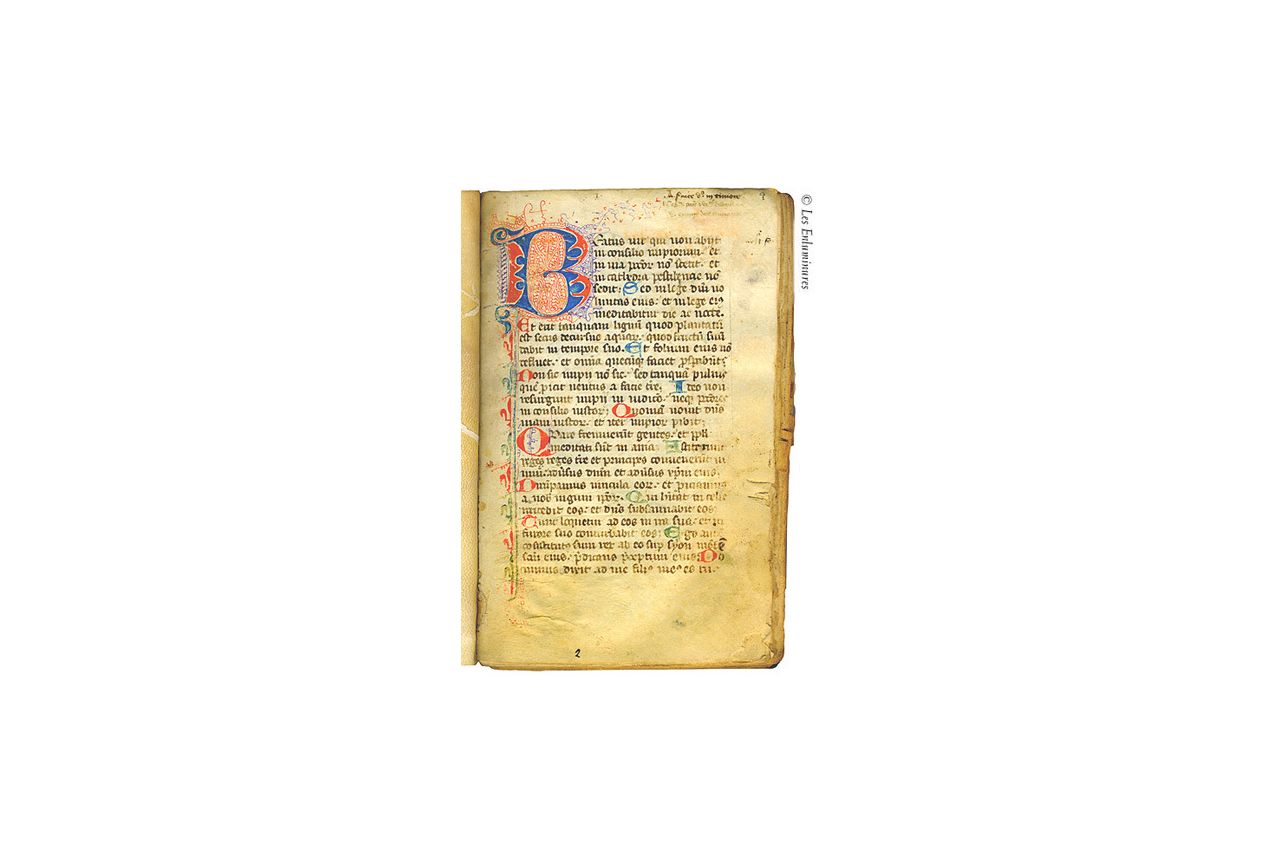 Beatus vir qui non abijt
in consilio impiorum· et
in via pccor no stetit· et
in cathedra pestilencie no
sedit: Sed in lege dni vo
luntas eius· et in lege eiꝰ
meditabitur die ac nocte.
Et erit tanquam lignu quod plantatu
est secus decursus aquar· quod fructu suu
dabit in tempore suo· Et folium eius no
defluet· et omia quecuq faciet
Non sic impij no sic· sed tanqua puluis
que proicit ventus a facie tre· Ideo non
resurgunt impij in iudico· neq pccores
in consilio iustor: Quoniam novit dns
viam iustor· et iter impior pibit:
Quare fremuerut gentes· et ppli
meditati sut in ania· Astiterunt
reges reges tre et principes convenerut in
unu· adversus dnm et adversus xpm eius·
Dirupamus vincula eor· et proiciamus
a nob iugum ipor· Qui hitat in celis
irridebit eos· et dns subsannabit eos
Tunc loquetur ad eos in ira sua· et in
furore suo conturbabit eos: Ego aut
constitutus sum rex ab eo sup syon
scm eius· pdicans pceptum eius: Do
minus dixit ad me filiꝰ meꝰ es tu·
2
© Les Enluminures